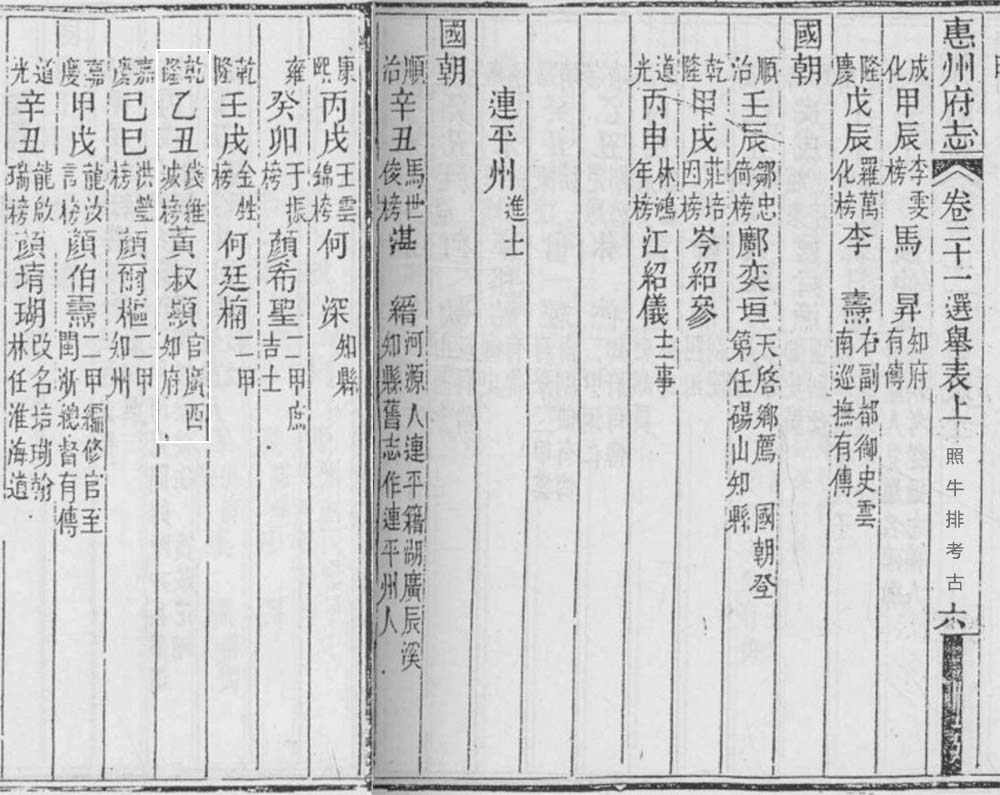 惠州府志 卷三十一 選舉表上 六
照牛排考古
成化甲辰李旻榜 馬昇 知府有傳
隆慶戊辰羅萬化榜 李燾 右副都御史雲南巡撫有傳
國朝
順治壬辰鄒忠倚榜 鄺奕垣 天啓鄉薦 國朝登第任碭山知縣
乾隆甲戌莊培因榜 岑紹參
道光丙申林鴻年榜 江紹儀 主事
連平州進士
國朝
順治辛丑馬世俊榜 湛縉 河源人連平籍湖廣辰溪知縣舊志作連平州人
康熙丙戌王雲錦榜 何深 知縣
雍癸卯于振榜 顏希聖 二甲庶吉士
乾隆壬戌金甡榜 何廷楠 二甲
乾隆乙丑錢維城榜 黃叔顯 官廣西知府
嘉慶己巳洪瑩榜 顏爾樞 二甲知州
嘉慶甲戌龍汝言榜 顏伯燾 二甲編修官至閩浙總督有傳
道光辛丑龍啟瑞榜 顏堉瑚 改名培瑚翰林任淮海道